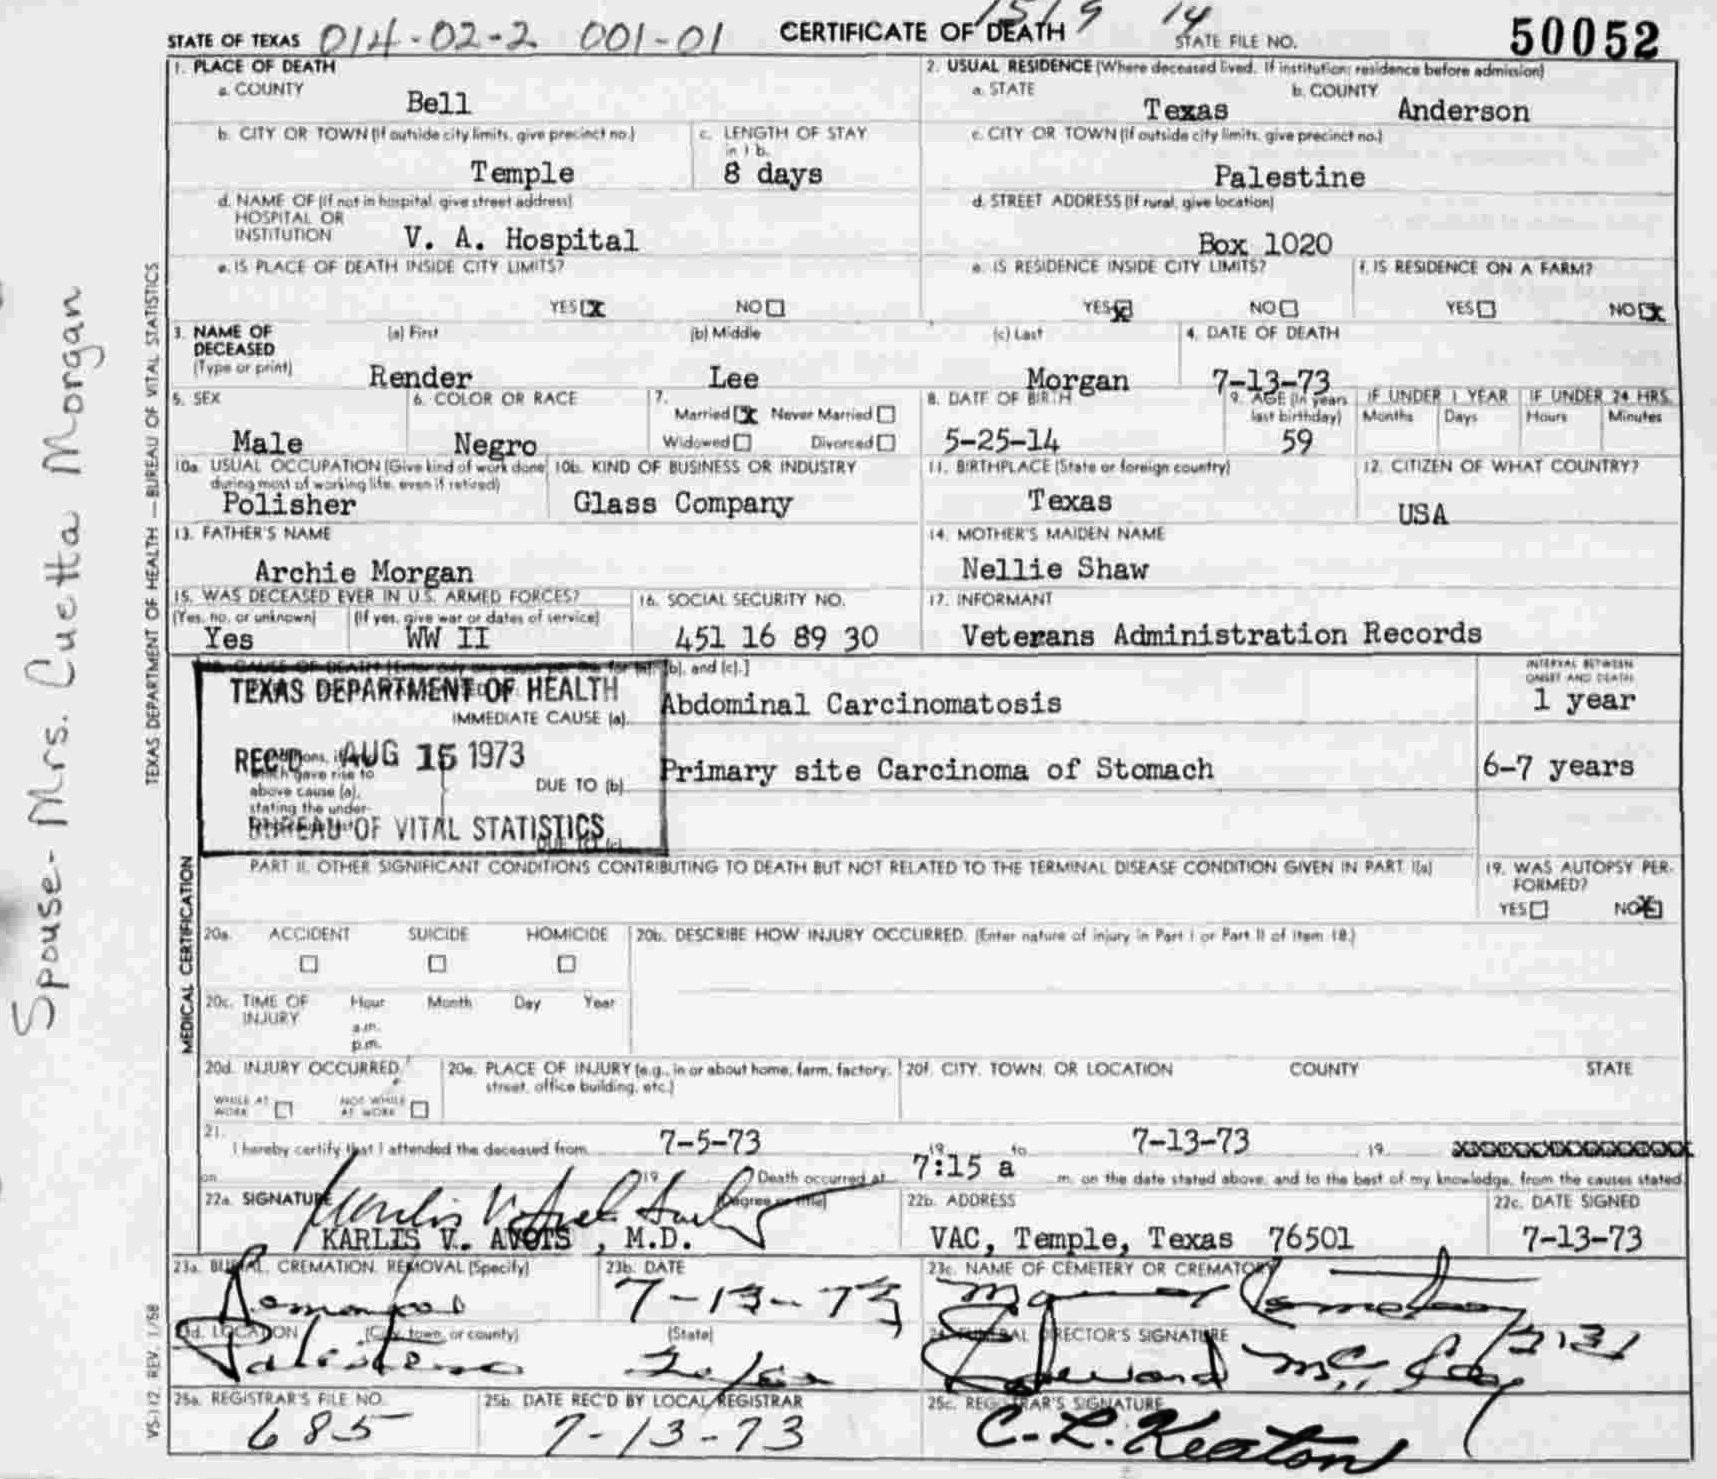 STATE OF TEXAS 014-02-2 001-01 CERTIFICATE OF DEATH 1519 14 STATE FILE NO. 50052
1. PLACE OF DEATH
a. COUNTY
Bell
2. USUAL RESIDENCE (Where deceased lived. If institution: residence before admission)
a. STATE b. COUNTY
Texas Anderson
b. CITY OR TOWN (If outside city limits, give precinct no.) c. LENGTH OF STAY in 1 b.
Temple 8 days
c. CITY OR TOWN (If outside city limits, give precinct no.)
Palestine
d. NAME OF (If not in hospital, give street address)
HOSPITAL OR
INSTITUTION V. A. Hospital
d. STREET ADDRESS (If rural, give location)
Box 1020
e. IS PLACE OF DEATH INSIDE CITY LIMITS?
YES X NO
e. IS RESIDENCE INSIDE CITY LIMITS? f. IS RESIDENCE ON A FARM?
YES X NO YES NO X
3. NAME OF DECEASED (Type or print) (a) First (b) Middle (c) Last 4. DATE OF DEATH
Render Lee Morgan 7-13-73
5. SEX 6. COLOR OR RACE 7. Married X Never Married Widowed Divorced
Male Negro
8. DATE OF BIRTH 9. AGE (In years last birthday) IF UNDER 1 YEAR IF UNDER 24 HRS.
Months Days Hours Minutes
5-25-14 59
10a. USUAL OCCUPATION (Give kind of work done during most of working life, even if retired) 10b. KIND OF BUSINESS OR INDUSTRY
Polisher Glass Company
11. BIRTHPLACE (State or foreign country) 12. CITIZEN OF WHAT COUNTRY?
Texas USA
13. FATHER'S NAME 14. MOTHER'S MAIDEN NAME
Archie Morgan Nellie Shaw
15. WAS DECEASED EVER IN U.S. ARMED FORCES? 16. SOCIAL SECURITY NO. 17. INFORMANT
(Yes, no, or unknown) (If yes, give war or dates of service)
Yes WW II 451 16 89 30 Veterans Administration Records
18. CAUSE OF DEATH [Enter only one cause per line for (a), (b), and (c).]
INTERVAL BETWEEN ONSET AND DEATH
TEXAS DEPARTMENT OF HEALTH
IMMEDIATE CAUSE (a) Abdominal Carcinomatosis 1 year
REC'D AUG 15 1973
which gave rise to
above cause (a),
stating the under-
DUE TO (b) Primary site Carcinoma of Stomach 6-7 years
BUREAU OF VITAL STATISTICS
DUE TO (c)
PART II. OTHER SIGNIFICANT CONDITIONS CONTRIBUTING TO DEATH BUT NOT RELATED TO THE TERMINAL DISEASE CONDITION GIVEN IN PART I(a)
19. WAS AUTOPSY PERFORMED?
YES NO X
20a. ACCIDENT SUICIDE HOMICIDE 20b. DESCRIBE HOW INJURY OCCURRED. (Enter nature of injury in Part I or Part II of item 18.)
20c. TIME OF INJURY Hour Month Day Year
a.m.
p.m.
20d. INJURY OCCURRED 20e. PLACE OF INJURY (e.g., in or about home, farm, factory, street, office building, etc.) 20f. CITY, TOWN, OR LOCATION COUNTY STATE
WHILE AT WORK NOT WHILE AT WORK
21. I hereby certify that I attended the deceased from 7-5-73 19 to 7-13-73 19 XXXXXXXXXXXXXXXXX
on 19 Death occurred at 7:15 a m. on the date stated above, and to the best of my knowledge, from the causes stated.
22a. SIGNATURE (Degree or title) 22b. ADDRESS 22c. DATE SIGNED
KARLIS V. AVOTS, M.D. VAC, Temple, Texas 76501 7-13-73
23a. BURIAL, CREMATION, REMOVAL (Specify) 23b. DATE 23c. NAME OF CEMETERY OR CREMATORY
7-13-73 Cemetery
23d. LOCATION (City, town, or county) (State) 24. FUNERAL DIRECTOR'S SIGNATURE
Palestine Texas Edward McCoy
25a. REGISTRAR'S FILE NO. 25b. DATE REC'D BY LOCAL REGISTRAR 25c. REGISTRAR'S SIGNATURE
685 7-13-73 C. L. Keaton
TEXAS DEPARTMENT OF HEALTH — BUREAU OF VITAL STATISTICS
MEDICAL CERTIFICATION
VS-112 REV. 1/58
Spouse- Mrs. Cuetta Morgan